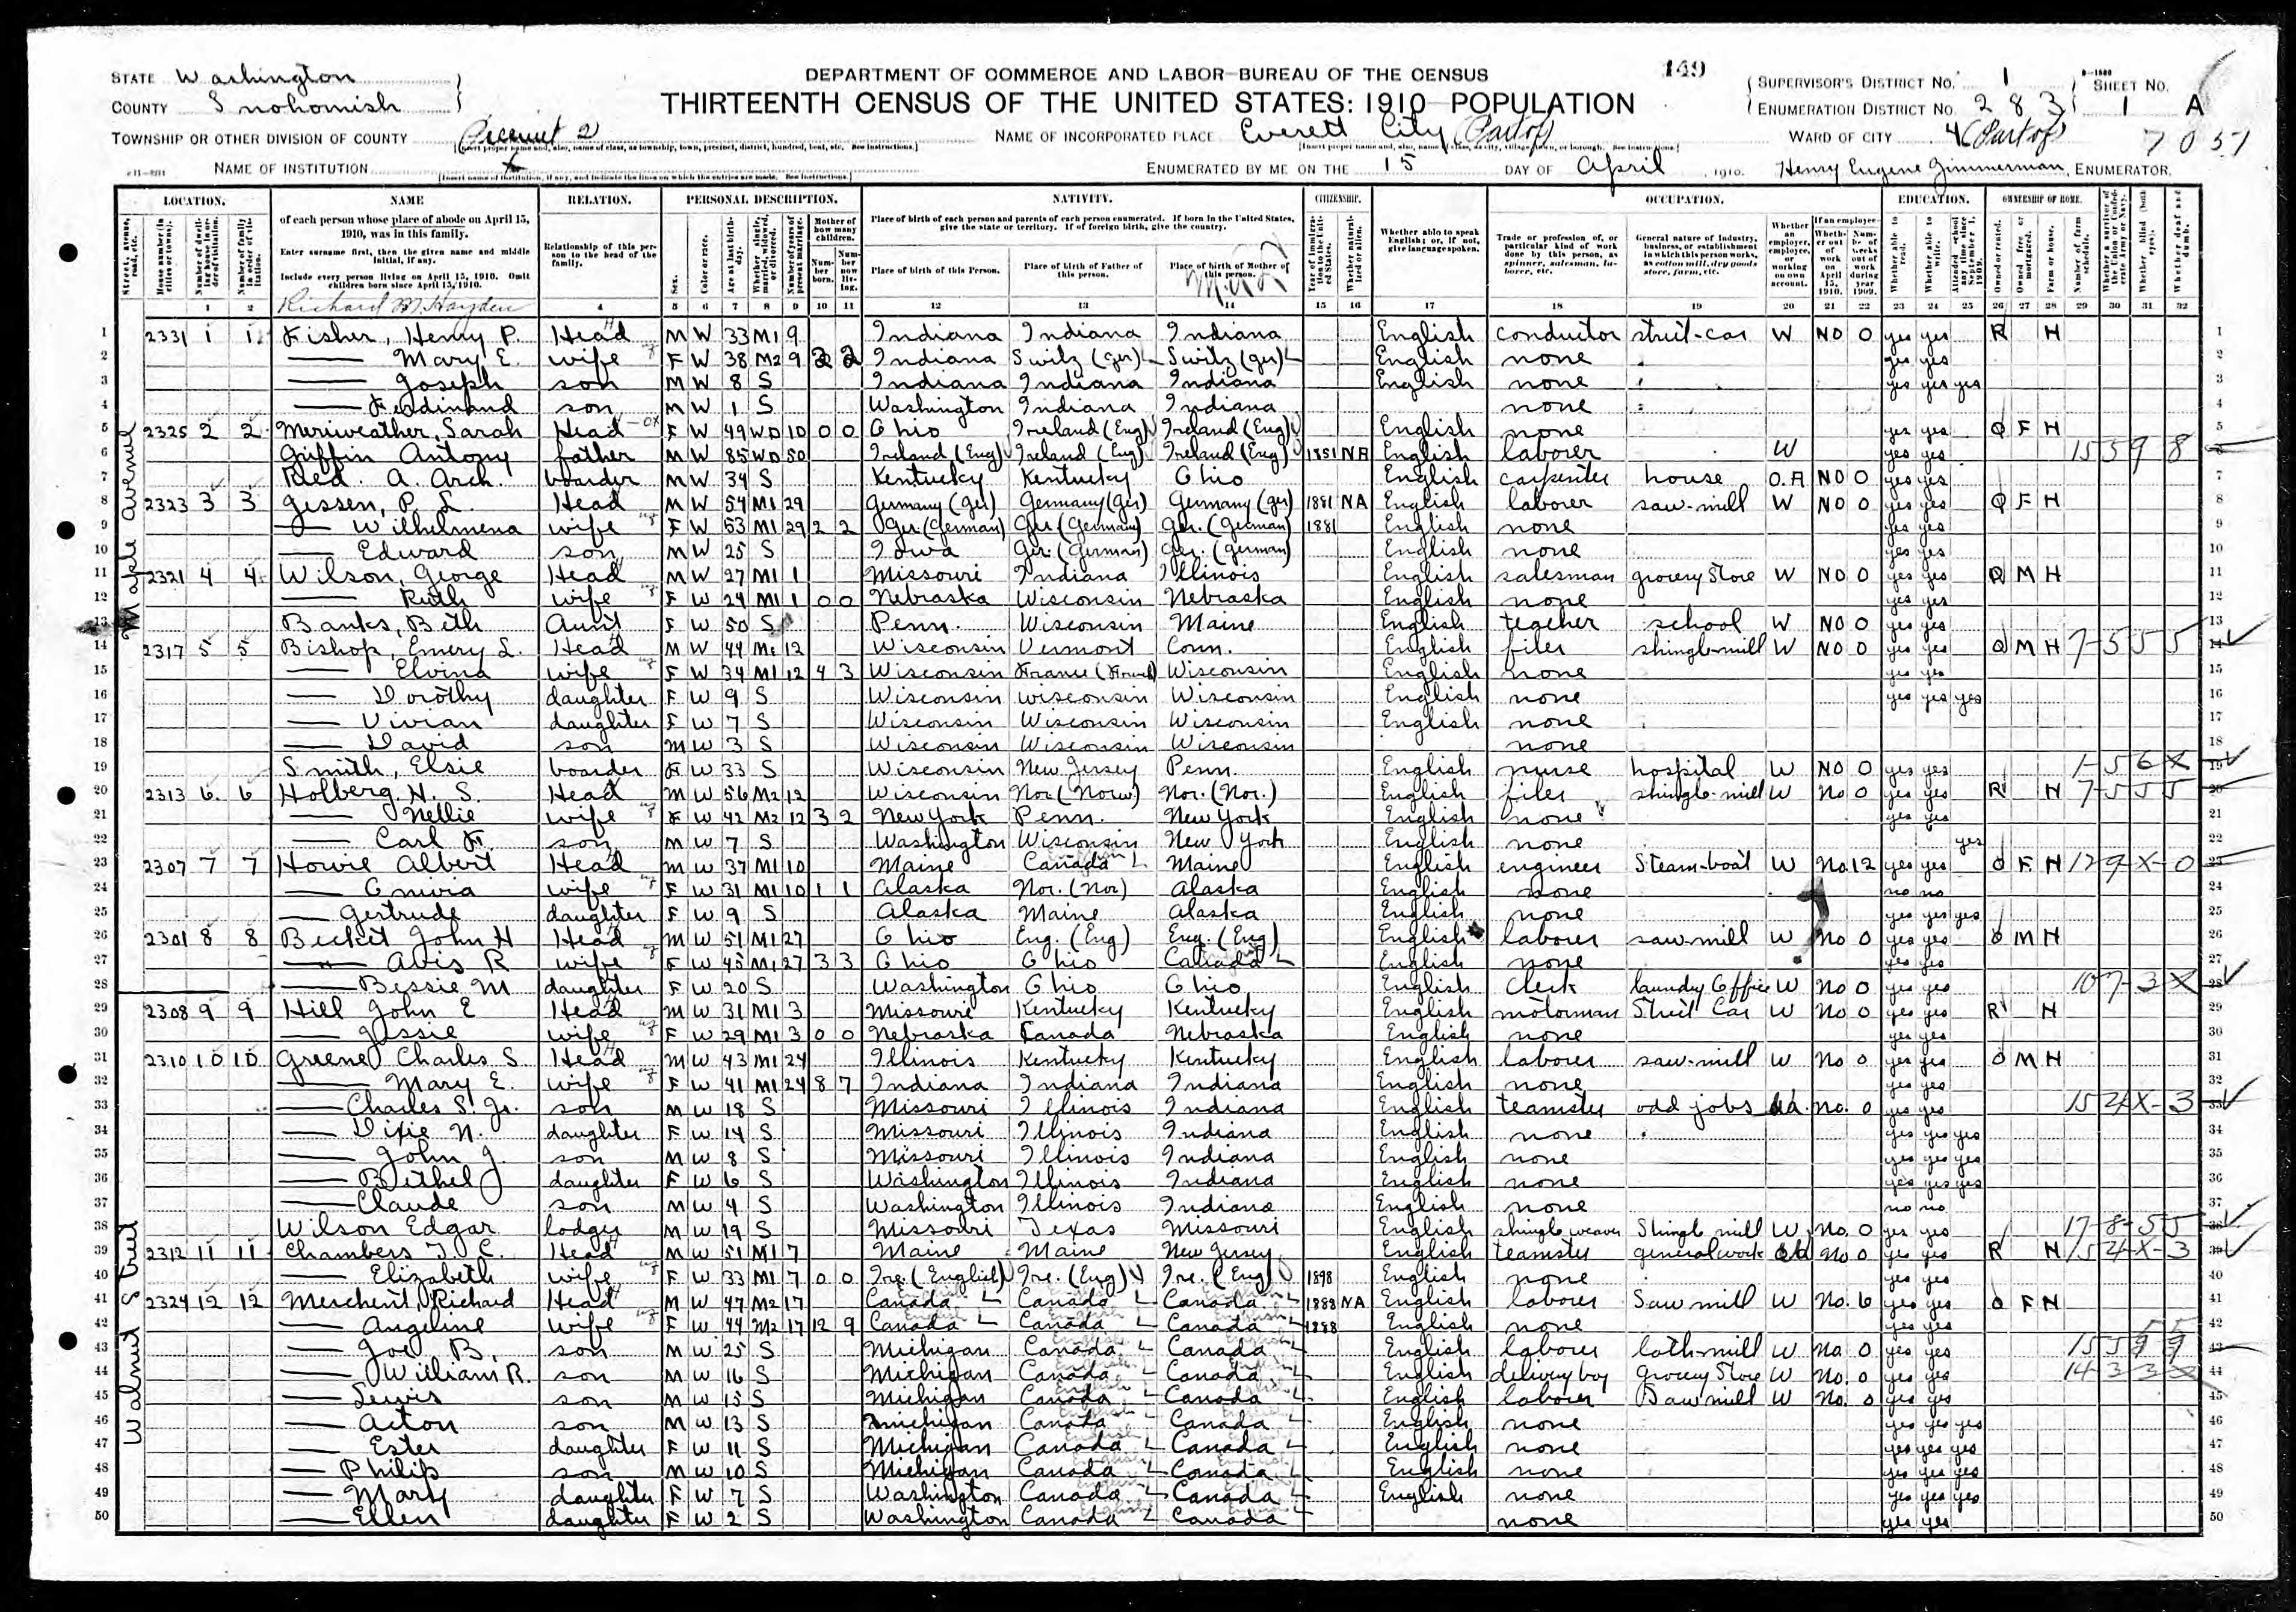 STATE Washington
COUNTY Snohomish
TOWNSHIP OR OTHER DIVISION OF COUNTY Precinct 2
NAME OF INSTITUTION X
DEPARTMENT OF COMMERCE AND LABOR-BUREAU OF THE CENSUS
THIRTEENTH CENSUS OF THE UNITED STATES: 1910-POPULATION
149
NAME OF INCORPORATED PLACE Everett City (Part of)
ENUMERATED BY ME ON THE 15 DAY OF April, 1910.
SUPERVISOR'S DISTRICT NO. 1
ENUMERATION DISTRICT NO. 283
SHEET NO. 1 A
WARD OF CITY 4 (Part of)
7051
Henry Eugene Zimmerman, ENUMERATOR.
LOCATION. NAME RELATION. PERSONAL DESCRIPTION. NATIVITY. CITIZENSHIP. OCCUPATION. EDUCATION. OWNERSHIP OF HOME.
of each person whose place of abode on April 15, 1910, was in this family.
Enter surname first, then the given name and middle initial, if any.
Include every person living on April 15, 1910. Omit children born since April 15, 1910.
Relationship of this person to the head of the family.
Place of birth of each person and parents of each person enumerated. If born in the United States, give the state or territory. If of foreign birth, give the country.
Place of birth of this Person. Place of birth of Father of this person. Place of birth of Mother of this person.
Whether able to speak English; or, if not, give language spoken.
Richard M. Hayden
Maple Avenue
1 2331 1 1 Fisher, Henry P. Head M W 33 M1 9 Indiana Indiana Indiana English conductor street-car W NO 0 yes yes R H
2 — Mary E. wife F W 38 M2 9 2 2 Indiana Switz (Ger) Switz (Ger) English none yes yes
3 — Joseph son M W 8 S Indiana Indiana Indiana English none yes yes yes
4 — Ferdinand son M W 1 S Washington Indiana Indiana none
5 2325 2 2 Meriweather, Sarah Head F W 49 WD 10 0 0 Ohio Ireland (Eng) Ireland (Eng) English none yes yes O F H
6 Griffin Antony father M W 85 WD 50 Ireland (Eng) Ireland (Eng) Ireland (Eng) 1851 NA English laborer W yes yes 1559 8
7 Ried. A. Arch. boarder M W 34 S Kentucky Kentucky Ohio English carpenter house O.A NO 0 yes yes
8 2323 3 3 Jessen, P. L. Head M W 54 M1 29 Germany (Ger) Germany (Ger) Germany (Ger) 1881 NA English laborer saw-mill W NO 0 yes yes O F H
9 — Wilhelmena wife F W 53 M1 29 2 2 Ger. (German) Ger (German) Ger. (German) 1881 English none yes yes
10 — Edward son M W 25 S Iowa Ger. (German) Ger. (German) English none yes yes
11 2321 4 4 Wilson, George Head M W 27 M1 1 Missouri Indiana Illinois English salesman grocery Store W NO 0 yes yes O M H
12 — Ruth wife F W 24 M1 1 0 0 Nebraska Wisconsin Nebraska English none yes yes
13 Banks, Beth Aunt F W 50 S Penn. Wisconsin Maine English teacher school W NO 0 yes yes
14 2317 5 5 Bishop, Emery L. Head M W 44 M1 12 Wisconsin Vermont Conn. English filer shingle-mill W NO 0 yes yes O M H 7-555
15 — Elvina wife F W 34 M1 12 4 3 Wisconsin France (French) Wisconsin English none yes yes
16 — Dorothy daughter F W 9 S Wisconsin Wisconsin Wisconsin English none yes yes yes
17 — Vivian daughter F W 7 S Wisconsin Wisconsin Wisconsin English none
18 — David son M W 3 S Wisconsin Wisconsin Wisconsin none
19 Smith, Elsie boarder F W 33 S Wisconsin New Jersey Penn. English nurse hospital W NO 0 yes yes 1-56X
20 2313 6 6 Holberg. H. S. Head M W 56 M2 12 Wisconsin Nor (Norw) Nor. (Nor.) English filer shingle-mill W No 0 yes yes R H 7-555
21 — Nellie wife F W 42 M2 12 3 2 New York Penn. New York English none yes yes
22 — Carl F. son M W 7 S Washington Wisconsin New York English none yes
23 2307 7 7 Howie Albert Head M W 37 M1 10 Maine Canada Maine English engineer Steam-boat W No 12 yes yes O F H 129X-0
24 — wife F W 31 M1 10 1 1 Alaska Nor. (Nor) Alaska English none no no
25 — Gertrude daughter F W 9 S Alaska Maine Alaska English none yes yes yes
26 2301 8 8 Becket John H Head M W 51 M1 27 Ohio Eng. (Eng) Eng. (Eng) English laborer saw-mill W No 0 yes yes O M H
27 — Avis R wife F W 45 M1 27 3 3 Ohio Ohio Canada English none yes yes
28 — Bessie M daughter F W 20 S Washington Ohio Ohio English Clerk laundry Office W No 0 yes yes 107-3X
Walnut Street
29 2308 9 9 Hill John E Head M W 31 M1 3 Missouri Kentucky Kentucky English motorman Street Car W No 0 yes yes R H
30 — Jessie wife F W 29 M1 3 0 0 Nebraska Canada Nebraska English none yes yes
31 2310 10 10 Greene Charles S Head M W 43 M1 24 Illinois Kentucky Kentucky English laborer saw-mill W No 0 yes yes O M H
32 — Mary E. wife F W 41 M1 24 8 7 Indiana Indiana Indiana English none yes yes
33 — Charles S. Jr. son M W 18 S Missouri Illinois Indiana English teamster odd jobs no. 0 yes yes 154X-3
34 — Dixie N. daughter F W 14 S Missouri Illinois Indiana English none yes yes yes
35 — John J. son M W 8 S Missouri Illinois Indiana English none yes yes yes
36 — Bethel daughter F W 6 S Washington Illinois Indiana English none yes yes yes
37 — Claude son M W 4 S Washington Illinois Indiana English none no no
38 Wilson Edgar lodger M W 19 S Missouri Texas Missouri English shingle weaver Shingle mill W No. 0 yes yes 17-8-55
39 2312 11 11 Chambers T. C. Head M W 51 M1 7 Maine Maine New Jersey English teamster general work No 0 yes yes R H 154X-3
40 — Elizabeth wife F W 33 M1 7 0 0 Ire. (English) Ire. (Eng) Ire. (Eng) 1898 English none yes yes
41 2324 12 12 Merchent, Richard Head M W 47 M2 17 Canada Canada Canada 1888 NA English laborer Saw mill W No. 6 yes yes O F H
42 — Angeline wife F W 44 M2 17 12 9 Canada Canada Canada 1888 English none yes yes
43 — Joe B. son M W 25 S Michigan Canada Canada English laborer lath-mill W No 0 yes yes 1559 9
44 — William R. son M W 16 S Michigan Canada Canada English delivery boy Grocery Store W No. 0 yes yes 14 33X
45 — Lewis son M W 15 S Michigan Canada Canada English laborer Saw mill W No. 0 yes yes
46 — Acton son M W 13 S Michigan Canada Canada English none yes yes yes
47 — Ester daughter F W 11 S Michigan Canada Canada English none yes yes yes
48 — Philip son M W 10 S Michigan Canada Canada English none yes yes yes
49 — Mary daughter F W 7 S Washington Canada Canada English none yes yes yes
50 — Ellen daughter F W 2 S Washington Canada Canada none yes yes